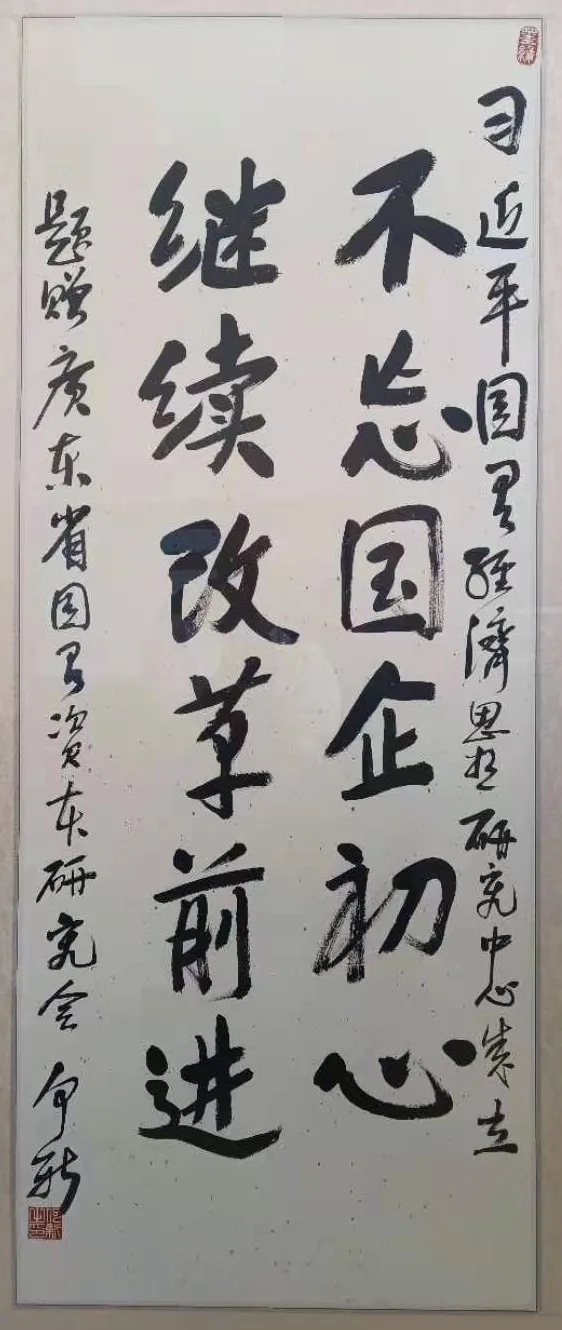 习近平国有经济思想研究中心成立
不忘国企初心
继续改革前进
题赠广东省国有资本研究会 何新